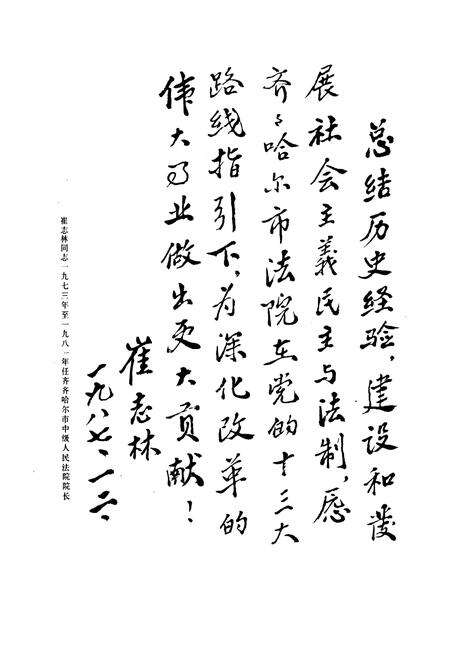 总结历史经验，建设和发
展社会主義民主与法制，愿
齐々哈尔市法院在党的十三大
路线指引下，为深化改革的
伟大事业做出更大贡献！
崔志林
一九八七、一二、
崔志林同志一九七三年至一九八一年任齐齐哈尔市中级人民法院院长